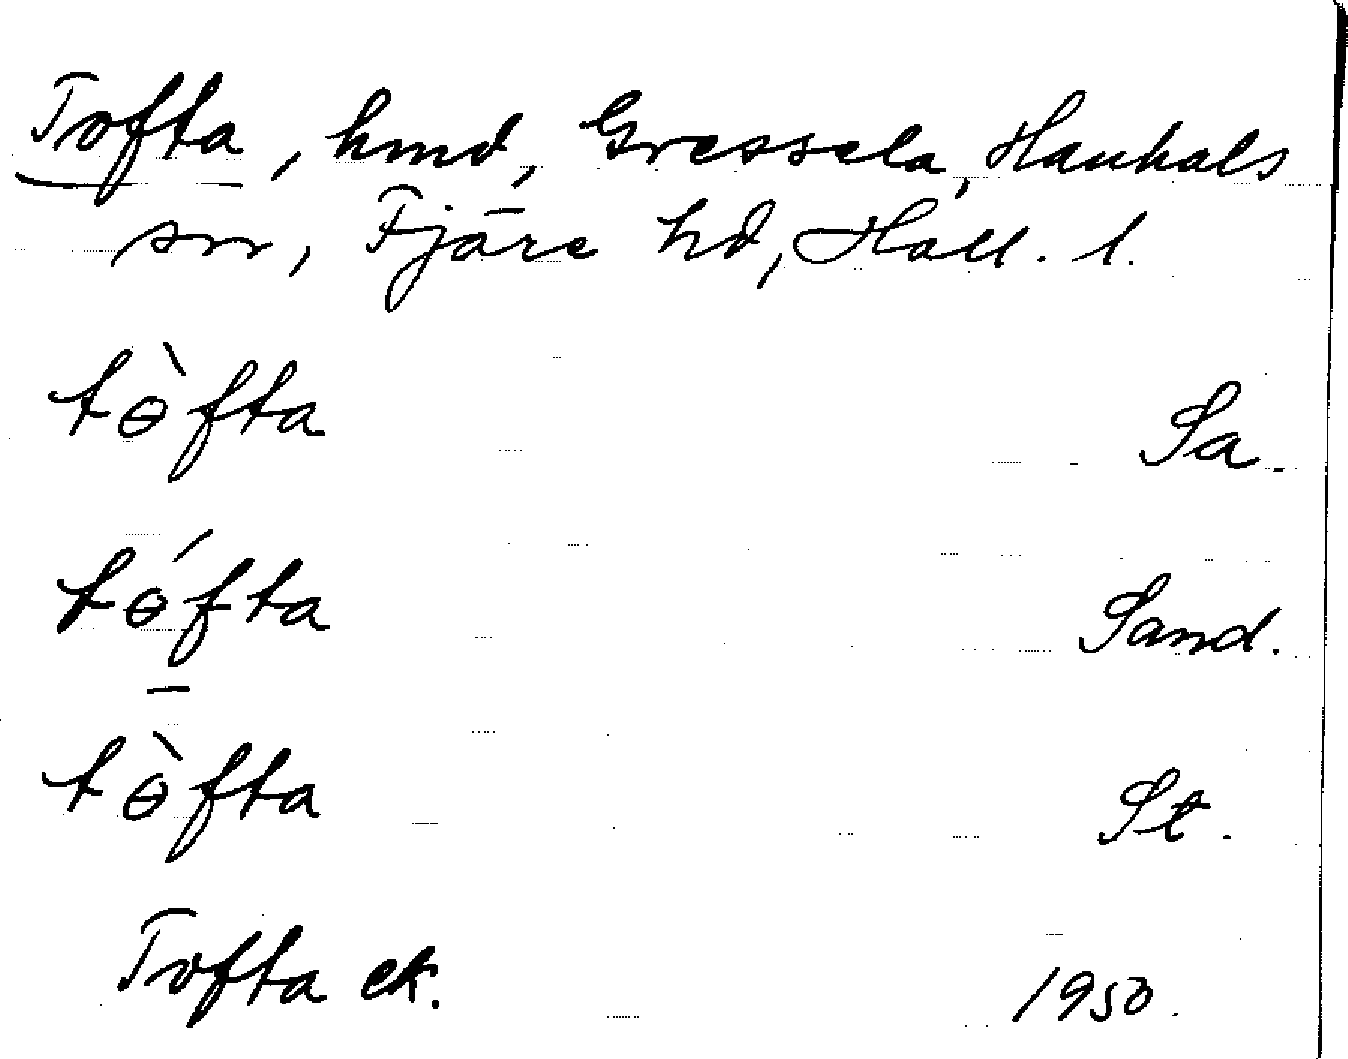 Tofta, hmd, Gressela, Hanhals
sn, Fjäre hd, Hall. l.
tɵ̀fta Sa.
tɵ́fta Sand.
tɵ̀fta St.
Tofta ek. 1950.